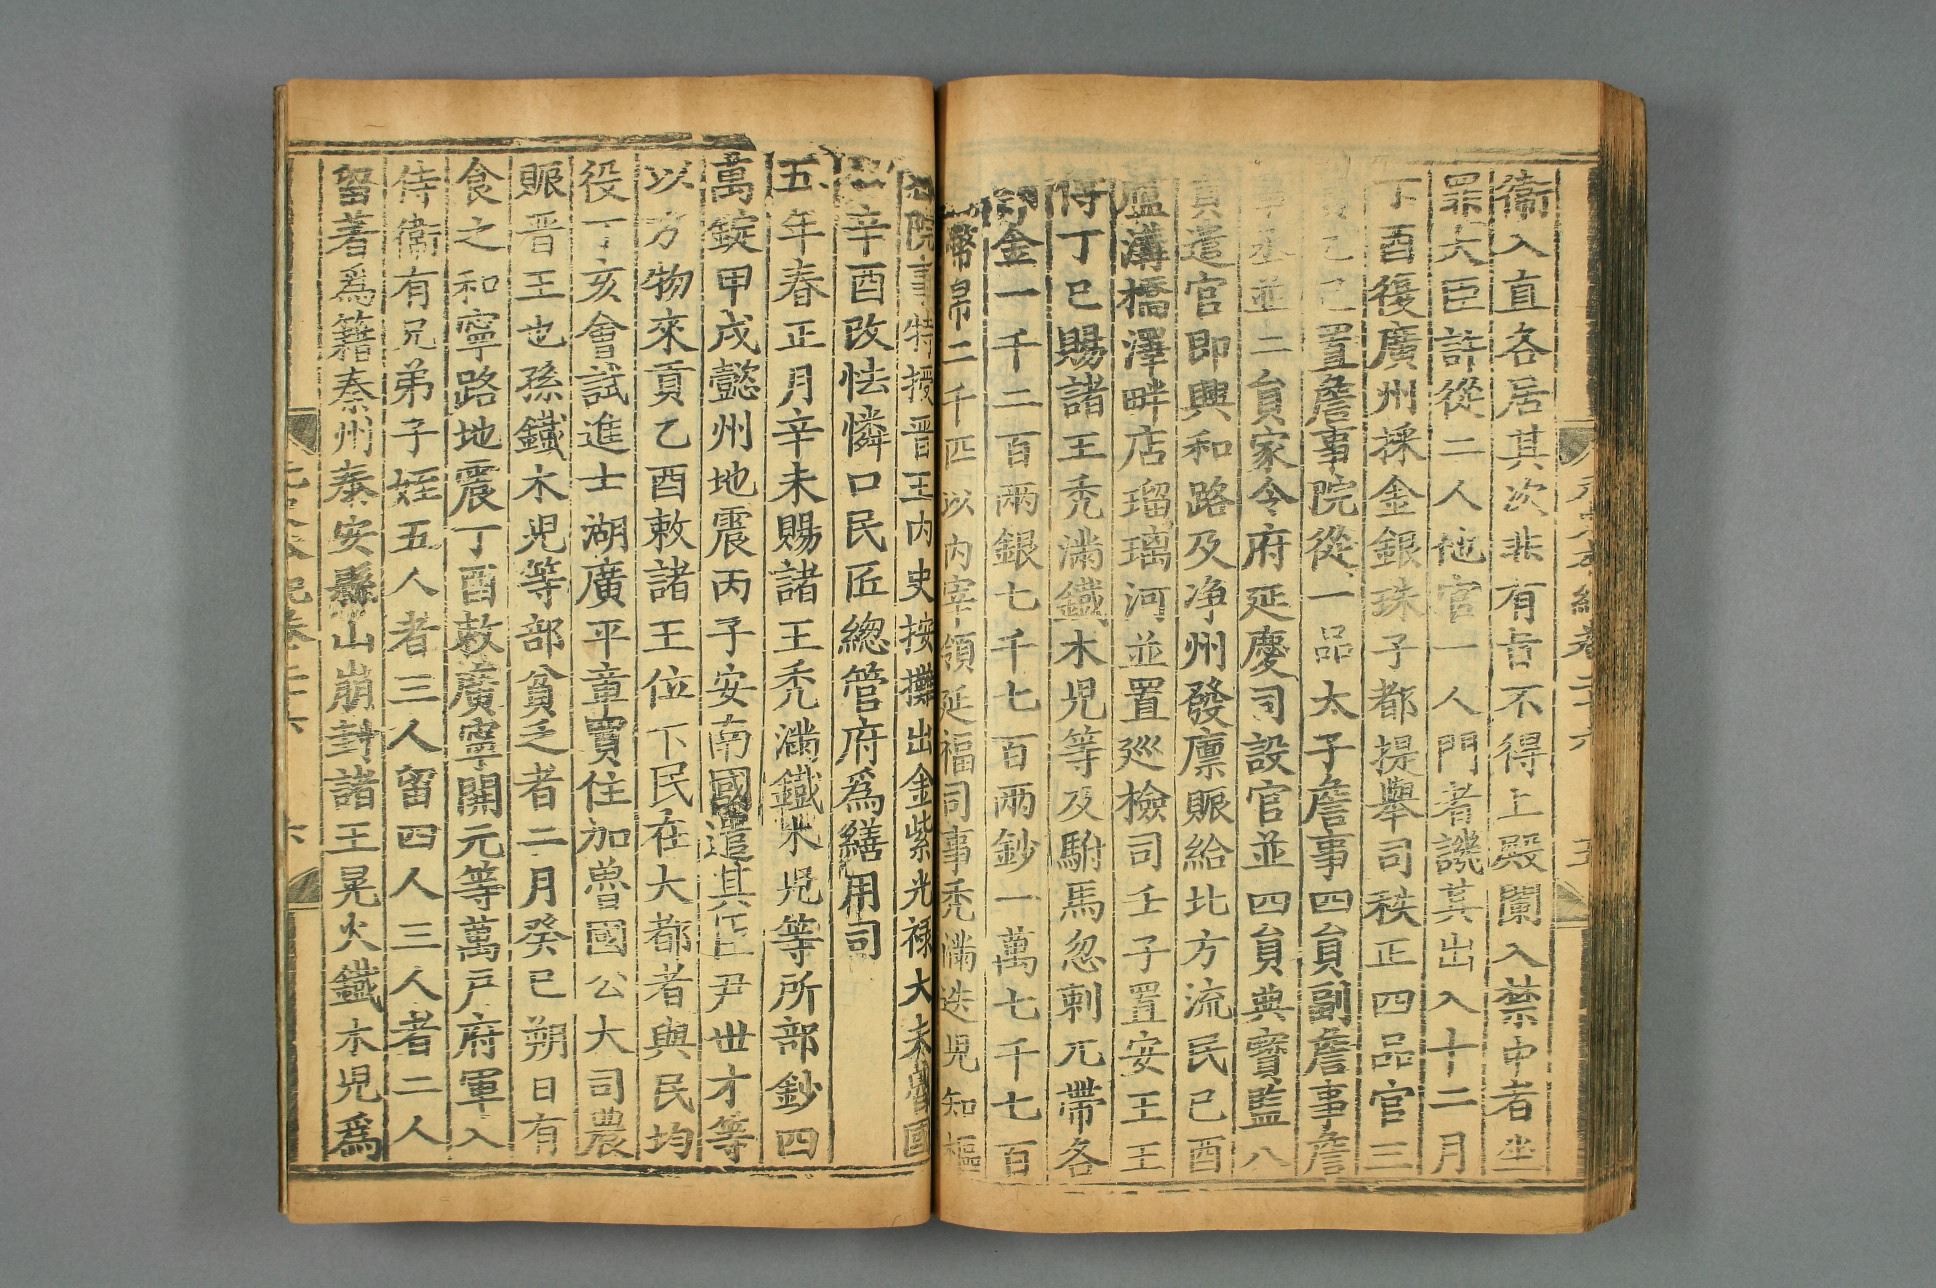 衞入直各居其次非有旨不得上殿闌入禁中者坐
罪大臣許從二人他官一人門者譏其出入十二月
丁酉復廣州採金銀珠子都提舉司秩正四品官三
己巳置詹事院從一品太子詹事四員副詹事詹
事丞並二員家令府延慶司設官並四員典寳監八
員遣官即興和路及净州發廪賑給北方流民己酉
蘆溝橋澤畔店瑠璃河並置廵檢司壬子置安王王
傅丁巳賜諸王秃滿鐵木児等及駙馬忽剌兀帶各
金一千二百兩銀七千七百兩鈔一萬七千七百
幣帛二千匹以内宰領延福司事秃滿迭児知樞
院事特授晋王内史按攤出金紫光禄大夫魯國
辛酉改怯憐口民匠總管府爲繕用司
五年春正月辛未賜諸王秃滿鐵木児等所部鈔四
萬錠甲戌懿州地震丙子安南國遣其臣尹世才等
以方物來貢乙酉敕諸王位下民在大都者與民均
役丁亥會試進士湖廣平章買住加魯國公大司農
賑晋王也孫鐵木児等部貧乏者二月癸巳朔日有
食之和寧路地震丁酉敕廣寧開元等萬戸府軍入
侍衞有兄弟子姪五人者三人留四人三人者二人
留著爲籍秦州秦安縣山崩封諸王晃火鐵木児爲